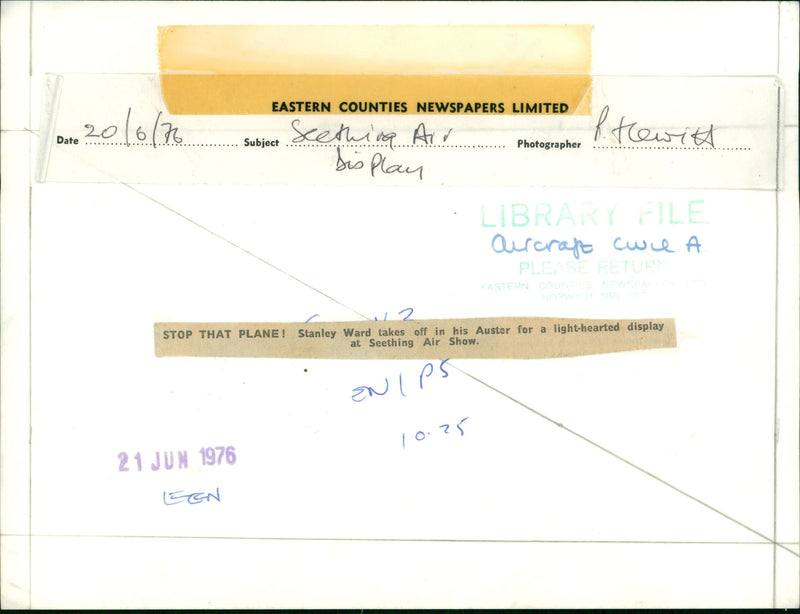 EASTERN COUNTIES NEWSPAPERS LIMITED
Date 20/6/76 Subject Seething Air Photographer P. Hewitt
Display
LIBRARY FILE
Aircraft Civil A
PLEASE RETURN
EASTERN COUNTIES NEWSPAPERS LTD
NORWICH
STOP THAT PLANE! Stanley Ward takes off in his Auster for a light-hearted display
at Seething Air Show.
EN1 P5
10.25
21 JUN 1976
EEN